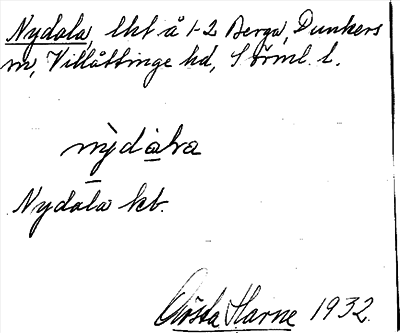 Nydala, lht å 1-2 Berga, Dunkers
sn, Villåttinge hd, Sörml. l.
nỳdàla
Nydala kb.
Gösta Harne 1932.